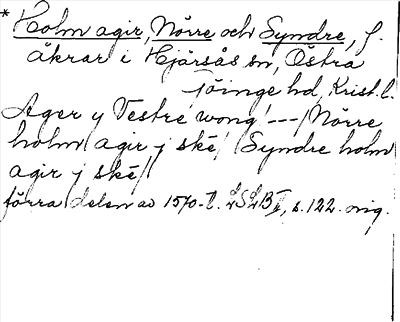 * Holm agir, Nörre och Syndre, f.
åkrar i Hjärsås sn, Östra
Göinge hd, Krist. l.
Ager y Vestre wong! --- / Nörre
holm agir j ske / Syndre holm
agir j ske /
förra delen av 1570-t. LSLB II, s. 122. orig.